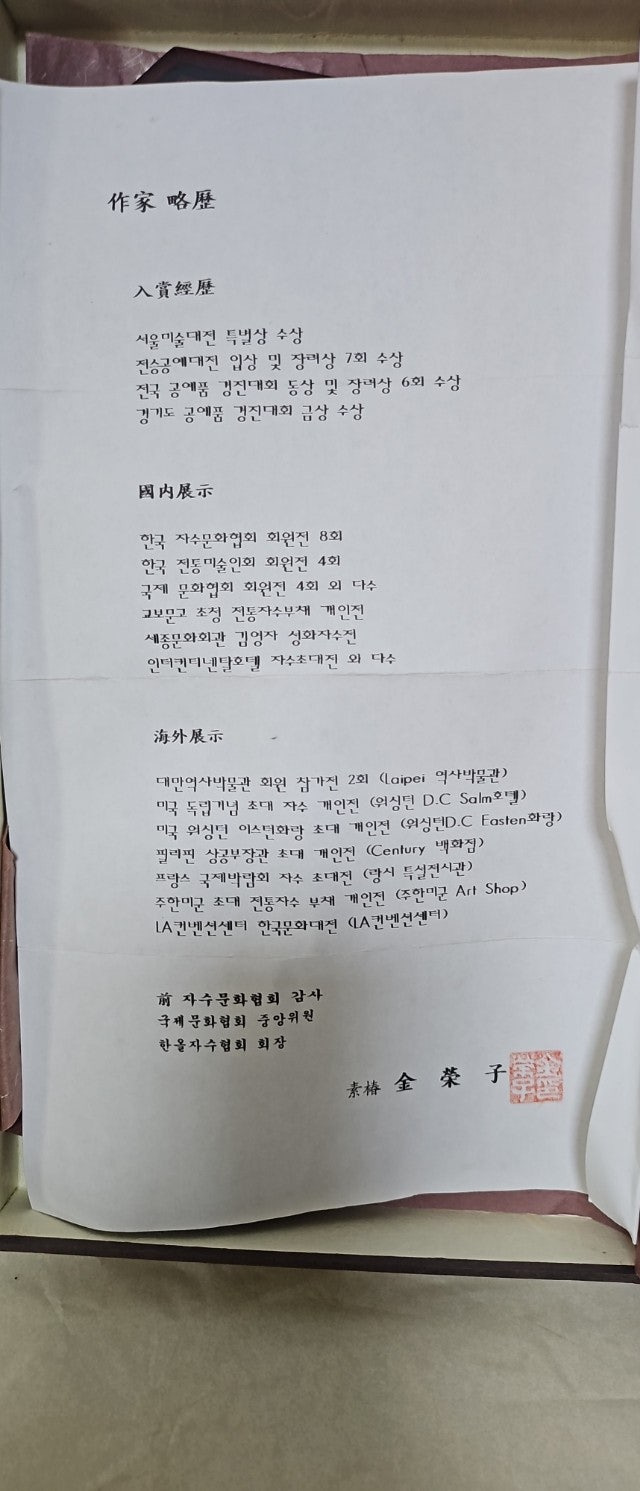 作家 略歷
入賞經歷
서울미술대전 특별상 수상
전승공예대전 입상 및 장려상 7회 수상
전국 공예품 경진대회 동상 및 장려상 6회 수상
경기도 공예품 경진대회 금상 수상
國內展示
한국 자수문화협회 회원전 8회
한국 전통미술인회 회원전 4회
국제 문화협회 회원전 4회 외 다수
교보문고 초청 전통자수부채 개인전
세종문화회관 김영자 성화자수전
인터컨티넨탈호텔 자수초대전 외 다수
海外展示
대만역사박물관 회원 참가전 2회 (Laipei 역사박물관)
미국 독립기념 초대 자수 개인전 (워싱턴 D.C Salm호텔)
미국 워싱턴 이스턴화랑 초대 개인전 (워싱턴D.C Easten화랑)
필리핀 상공부장관 초대 개인전 (Century 백화점)
프랑스 국제박람회 자수 초대전 (랑시 특설전시관)
주한미군 초대 전통자수 부채 개인전 (주한미군 Art Shop)
LA컨벤션센터 한국문화대전 (LA컨벤션센터)
前 자수문화협회 감사
국제문화협회 중앙위원
한올자수협회 회장
素椿 金 榮 子